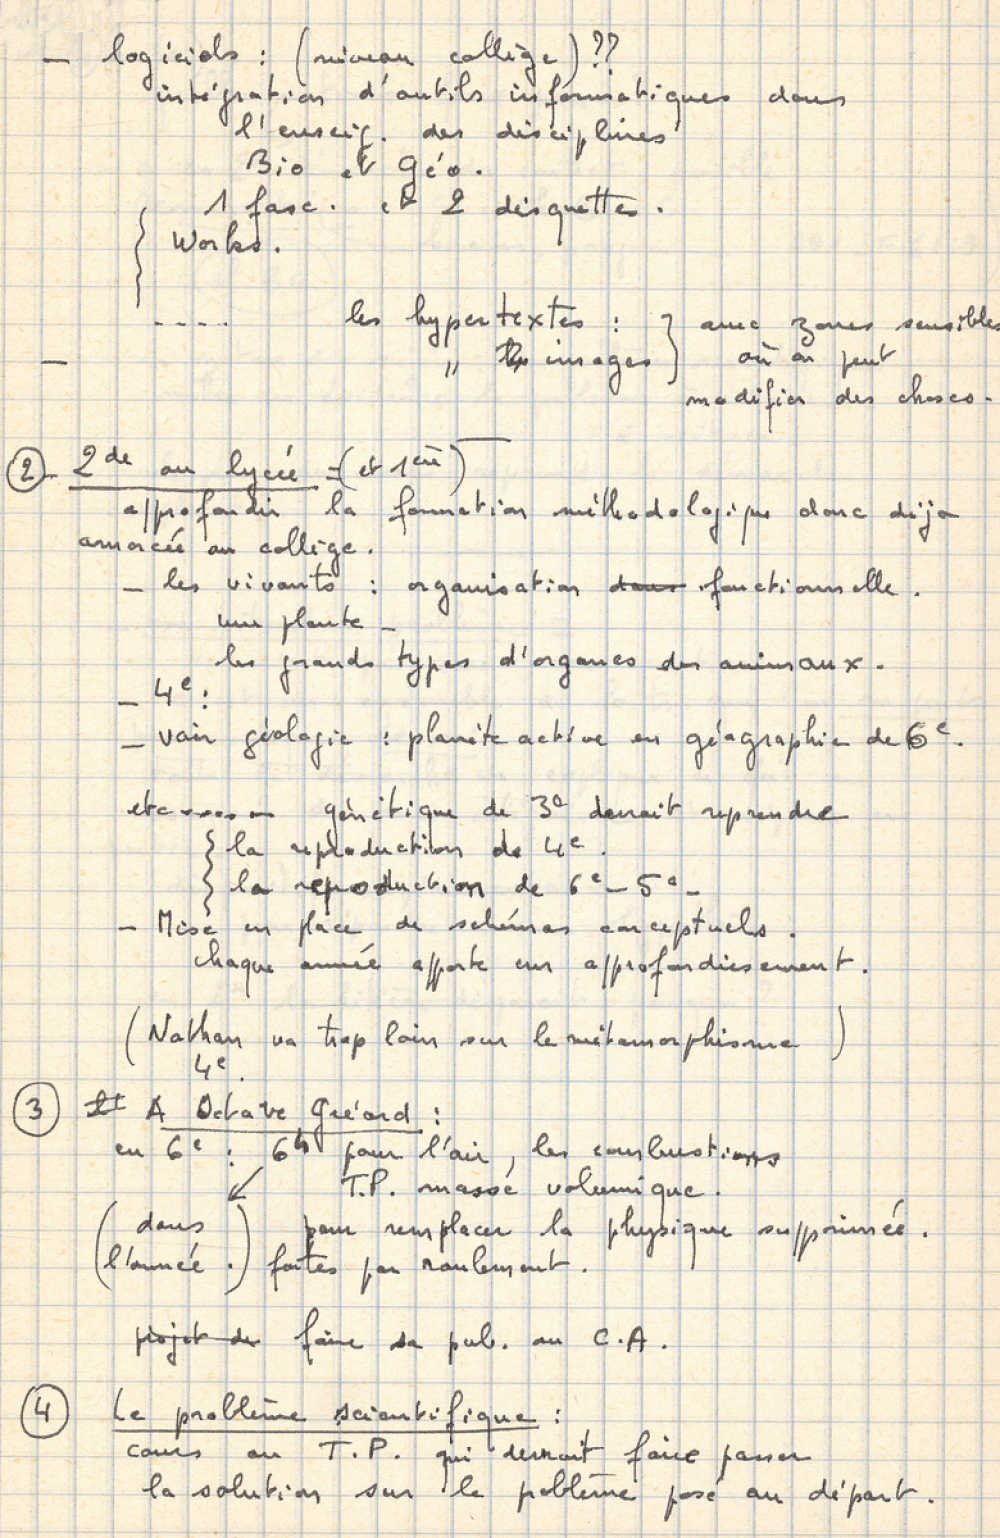 – logiciels : (niveau collège) ??
intégration d'outils informatiques dans
l'enseig. des disciplines
Bio et Géo.
1 fasc. et 2 disquettes.
Works.
.... les hypertextes : } avec zones sensibles
– " images } où on peut
modifier des choses.
② – 2de au lycée = (et 1ère)
approfondir la formation méthodologique donc déjà
amorcée au collège.
– les vivants : organisation dans fonctionnelle.
une plante –
les grands types d'organes des animaux.
– 4e :
– voir géologie : planète active en géographie de 6e.
etc..... génétique de 3e devrait reprendre
{ la reproduction de 4e.
{ la reproduction de 6e – 5e –
– Mise en place de schémas conceptuels.
chaque année apporte un approfondissement.
(Nathan va trop loin sur le métamorphisme)
4e.
③ A Octave Gréard :
en 6e : 6h pour l'air, les combustions
T.P. masse volumique.
(dans pour remplacer la physique supprimée.
l'année.) faites par roulement.
projet de faire sa pub. au C.A.
④ Le problème scientifique :
cours ou T.P. qui devrait faire passer
la solution sur le problème posé au départ.